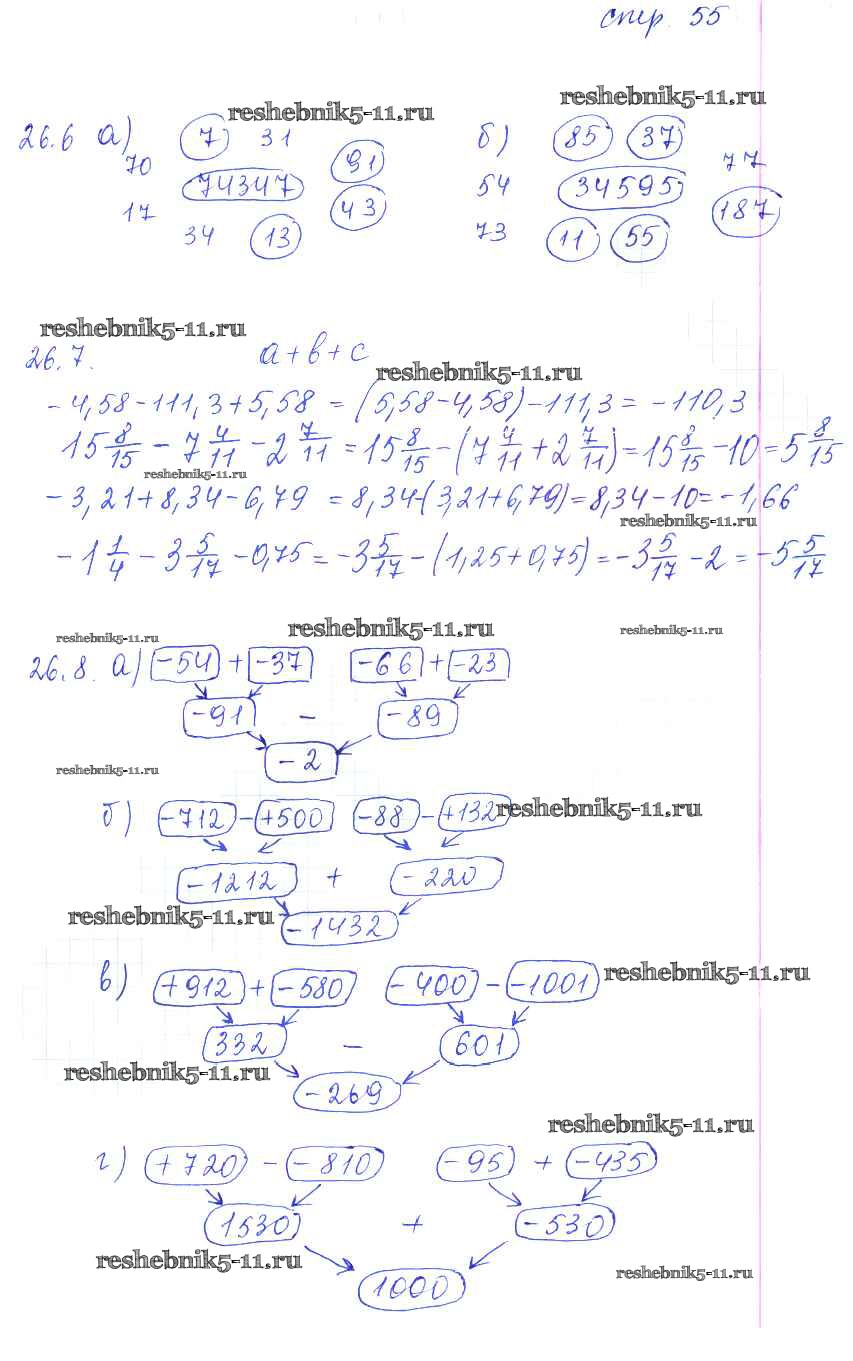 стр. 55
reshebnik5-11.ru reshebnik5-11.ru
26.6 а) 7 31 б) 85 37
70 91 77
74347 54 34595
17 43 187
34 13 73 11 55
reshebnik5-11.ru
26.7. a+b+c
reshebnik5-11.ru
-4,58-111,3+5,58 = (5,58-4,58)-111,3 = -110,3
15 8/15 - 7 4/11 - 2 7/11 = 15 8/15 - (7 4/11 + 2 7/11) = 15 8/15 - 10 = 5 8/15
reshebnik5-11.ru
-3,21+8,34-6,79 = 8,34-(3,21+6,79) = 8,34-10 = -1,66
reshebnik5-11.ru
-1 1/4 - 3 5/17 - 0,75 = -3 5/17 - (1,25+0,75) = -3 5/17 - 2 = -5 5/17
reshebnik5-11.ru reshebnik5-11.ru reshebnik5-11.ru
26.8. а) -54 + -37 -66 + -23
-91 - -89
-2
reshebnik5-11.ru
б) -712 - +500 -88 - +132 reshebnik5-11.ru
-1212 + -220
reshebnik5-11.ru -1432
в) +912 + -580 -400 - -1001 reshebnik5-11.ru
332 - 601
reshebnik5-11.ru -269
reshebnik5-11.ru
г) +720 - -810 -95 + -435
1530 + -530
reshebnik5-11.ru 1000 reshebnik5-11.ru